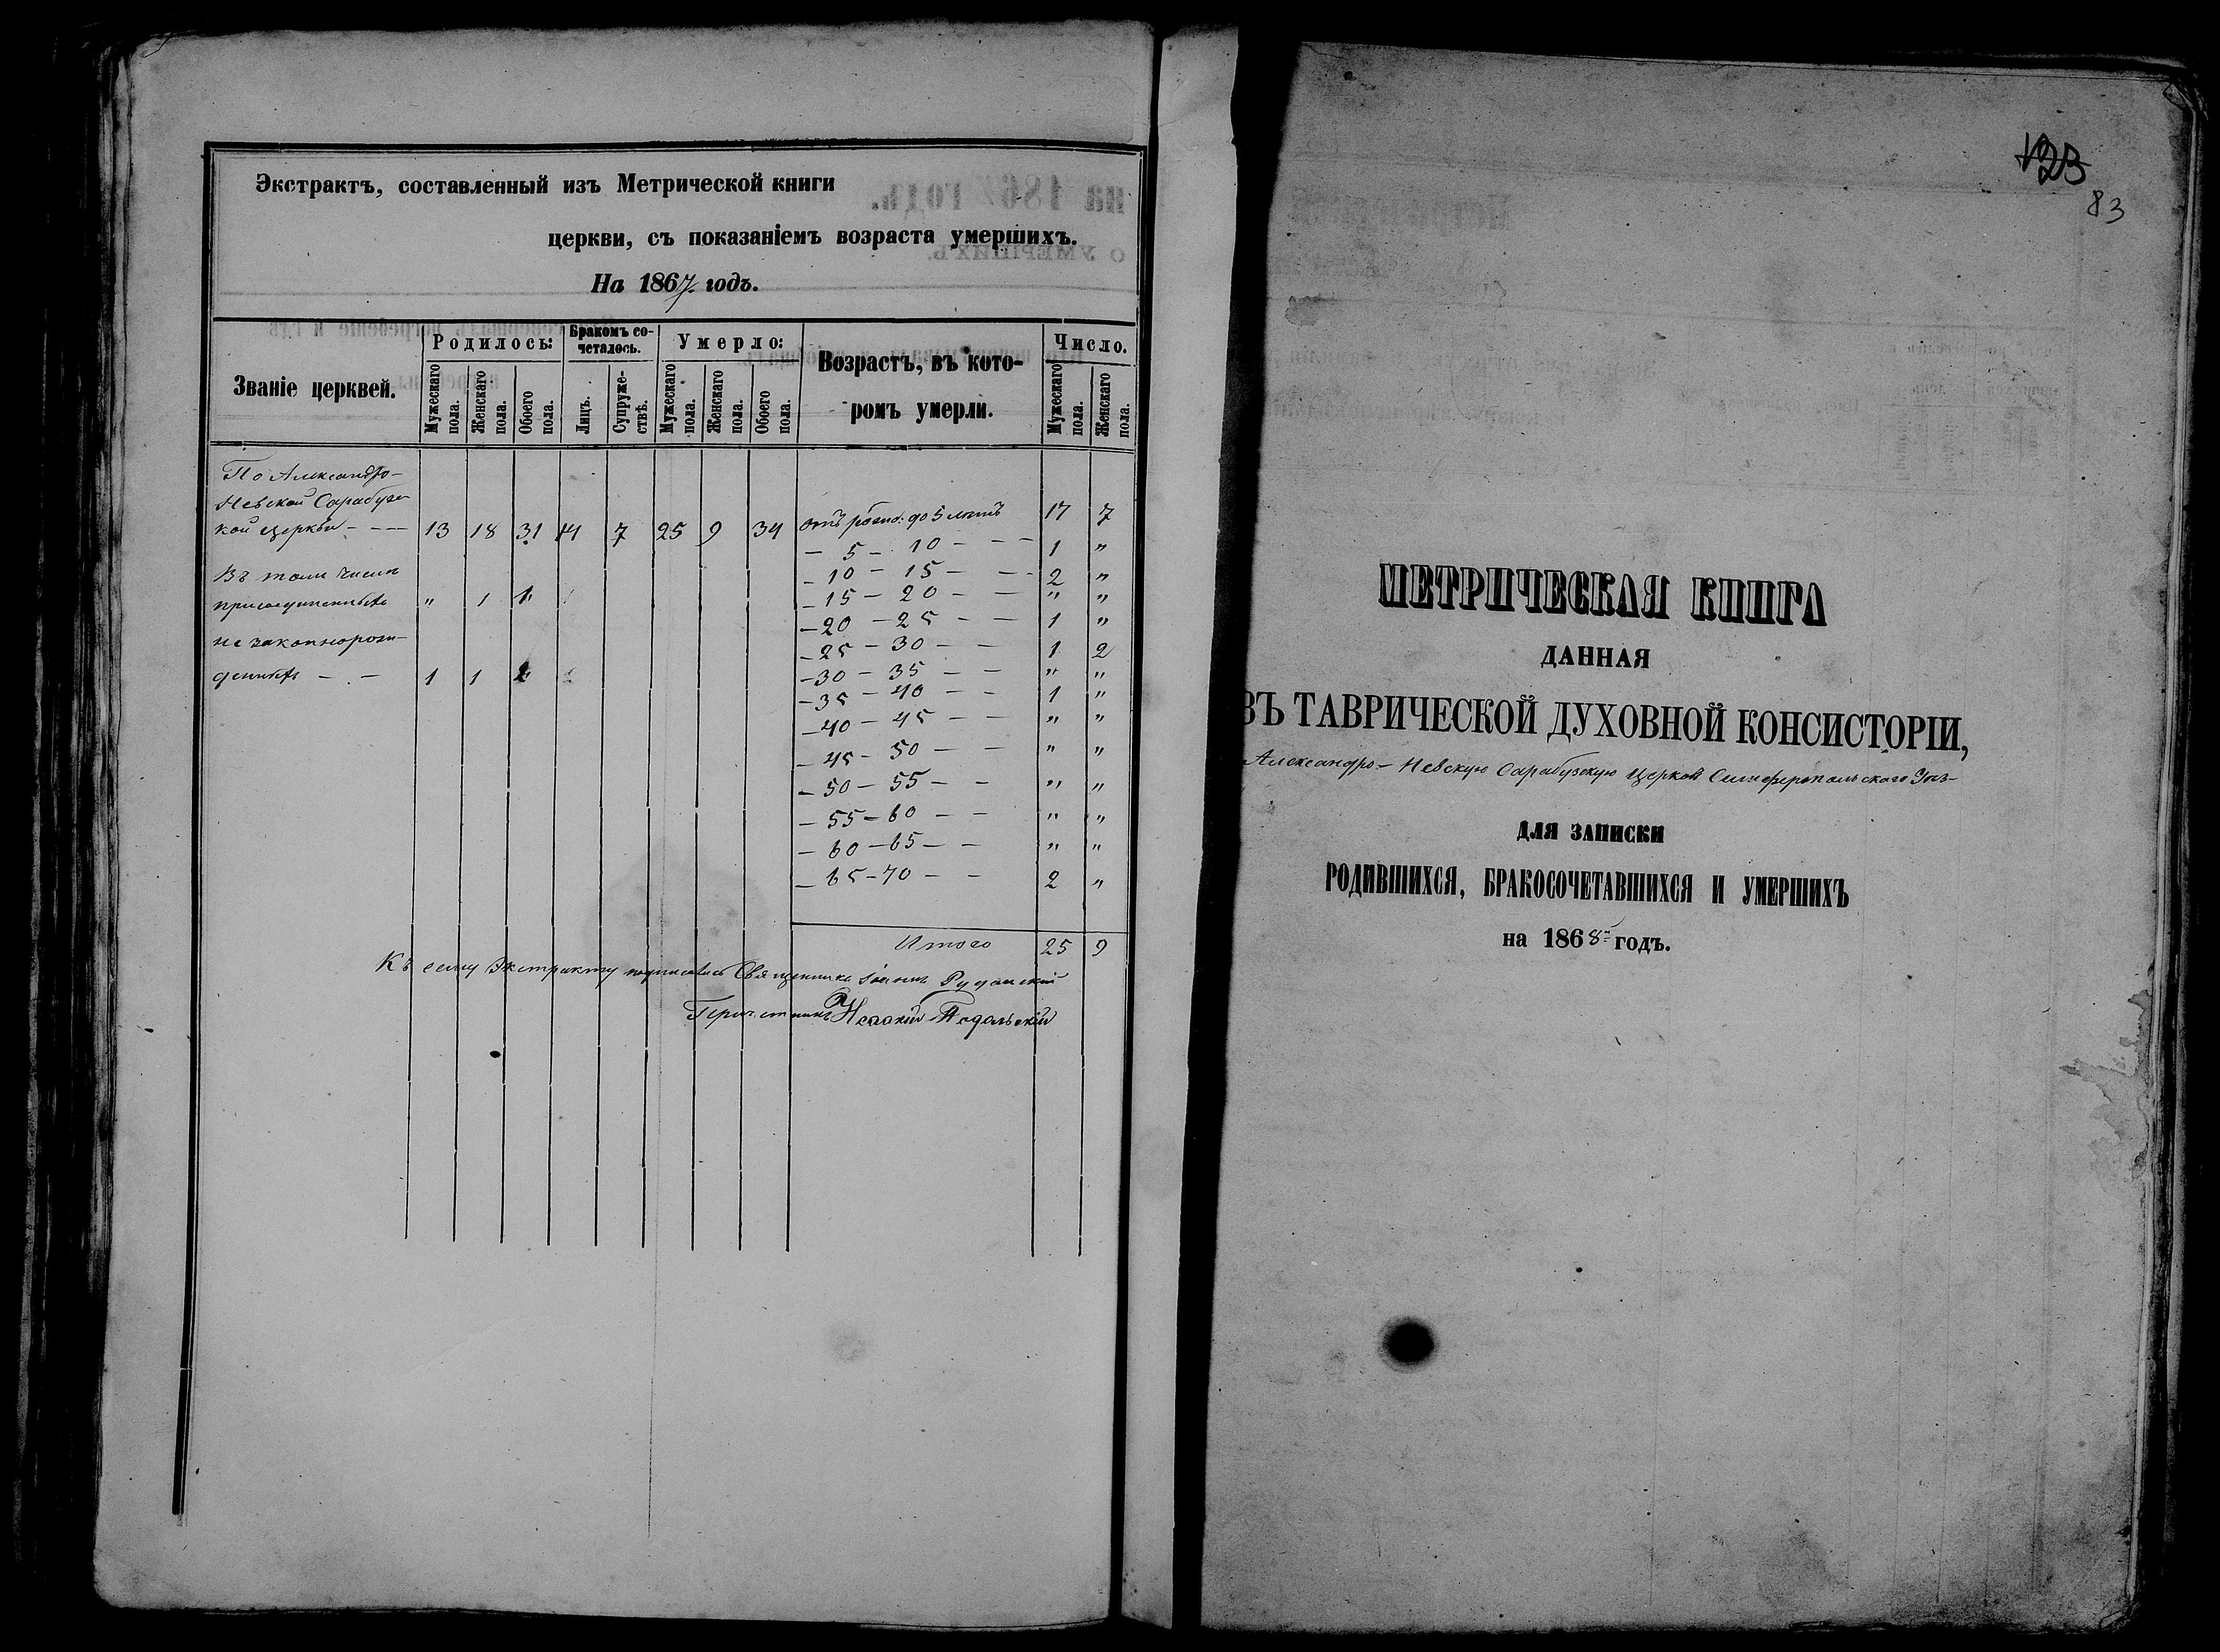 Экстрактъ, составленный изъ Метрической книги
церкви, съ показаніемъ возраста умершихъ.
На 1867 годъ.
Званіе церквей.
Родилось:
Бракомъ со-
четалось.
Умерло:
Возрастъ, въ кото-
ромъ умерли.
Число.
Мужескаго пола.
Женскаго пола.
Обоего пола.
Лицъ.
Супруже-
ствъ.
Мужескаго пола.
Женскаго пола.
Обоего пола.
Мужескаго пола.
Женскаго пола.
По Александро-
Невской Сарабуз-
кой церкви - - - 13 18 31 14 7 25 9 34 отъ рожд: до 5 лѣтъ 17 7
- 5 - 10 - - - 1 "
Въ томъ числѣ - 10 - 15 - - - 2 "
присоединенныхъ " 1 1 - 15 - 20 - - " "
- 20 - 25 - - 1 "
не законнорож- - 25 - 30 - - 1 2
денныхъ - - 1 1 2 - 30 - 35 - - " "
- 35 - 40 - - 1 "
- 40 - 45 - - " "
- 45 - 50 - - " "
- 50 - 55 - - " "
- 55 - 60 - - " "
- 60 - 65 - - " "
- 65 - 70 - - 2 "
Итого 25 9
Къ сему Экстракту подписались Священникъ Іоаннъ Руданскій
Подольскій
123
83
МЕТРИЧЕСКАЯ КНИГА
ДАННАЯ
ВЪ ТАВРИЧЕСКОЙ ДУХОВНОЙ КОНСИСТОРІИ,
Александро-Невскую Сарабузскую Церковь Симферопольского Уѣз-
ДЛЯ ЗАПИСКИ
РОДИВШИХСЯ, БРАКОСОЧЕТАВШИХСЯ И УМЕРШИХЪ
на 1868 годъ.